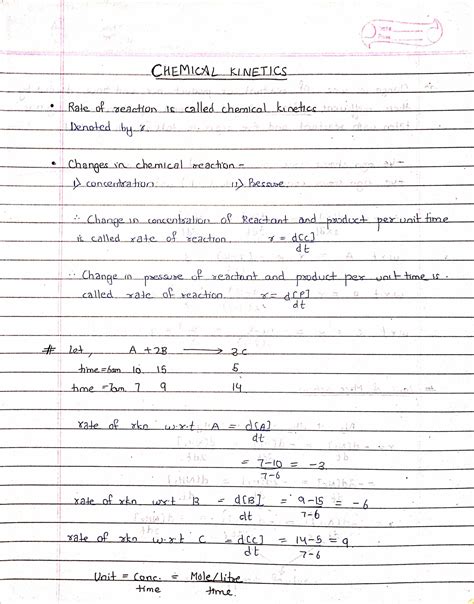 CHEMICAL KINETICS
• Rate of reaction is called chemical kinetics
Denoted by r.
• Changes in chemical reaction -
i) concentration ii) Pressure
∴ Change in concentration of Reactant and product per unit time
is called rate of reaction. r = d[C]/dt
∴ Change in pressure of reactant and product per unit time is
called rate of reaction. r = d[P]/dt
# let, A + 2B ⟶ 3C
time = 6am 10 15 5
time = 7am 7 9 14
rate of rxn w.r.t A = d[A]/dt
= 7-10/7-6 = -3
rate of rxn w.r.t B = d[B]/dt = 9-15/7-6 = -6
rate of rxn w.r.t C = d[C]/dt = 14-5/7-6 = 9
Unit = Conc./time = Mole/litre/time